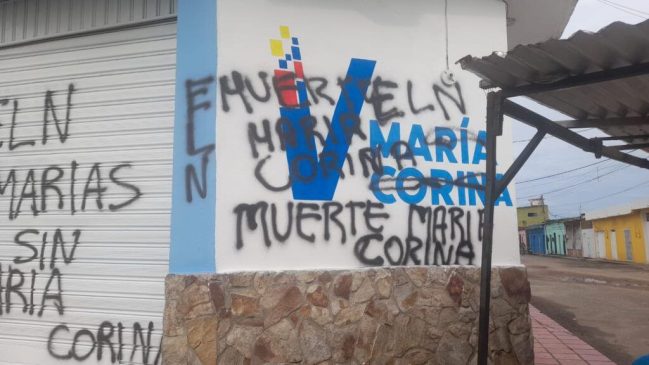 ELN
MARIAS
SIN
MARIA
CORINA
ELN
MUERTE ELN
MARIA
CORINA
V
MARÍA
CORINA
MUERTE MARIE
CORINA